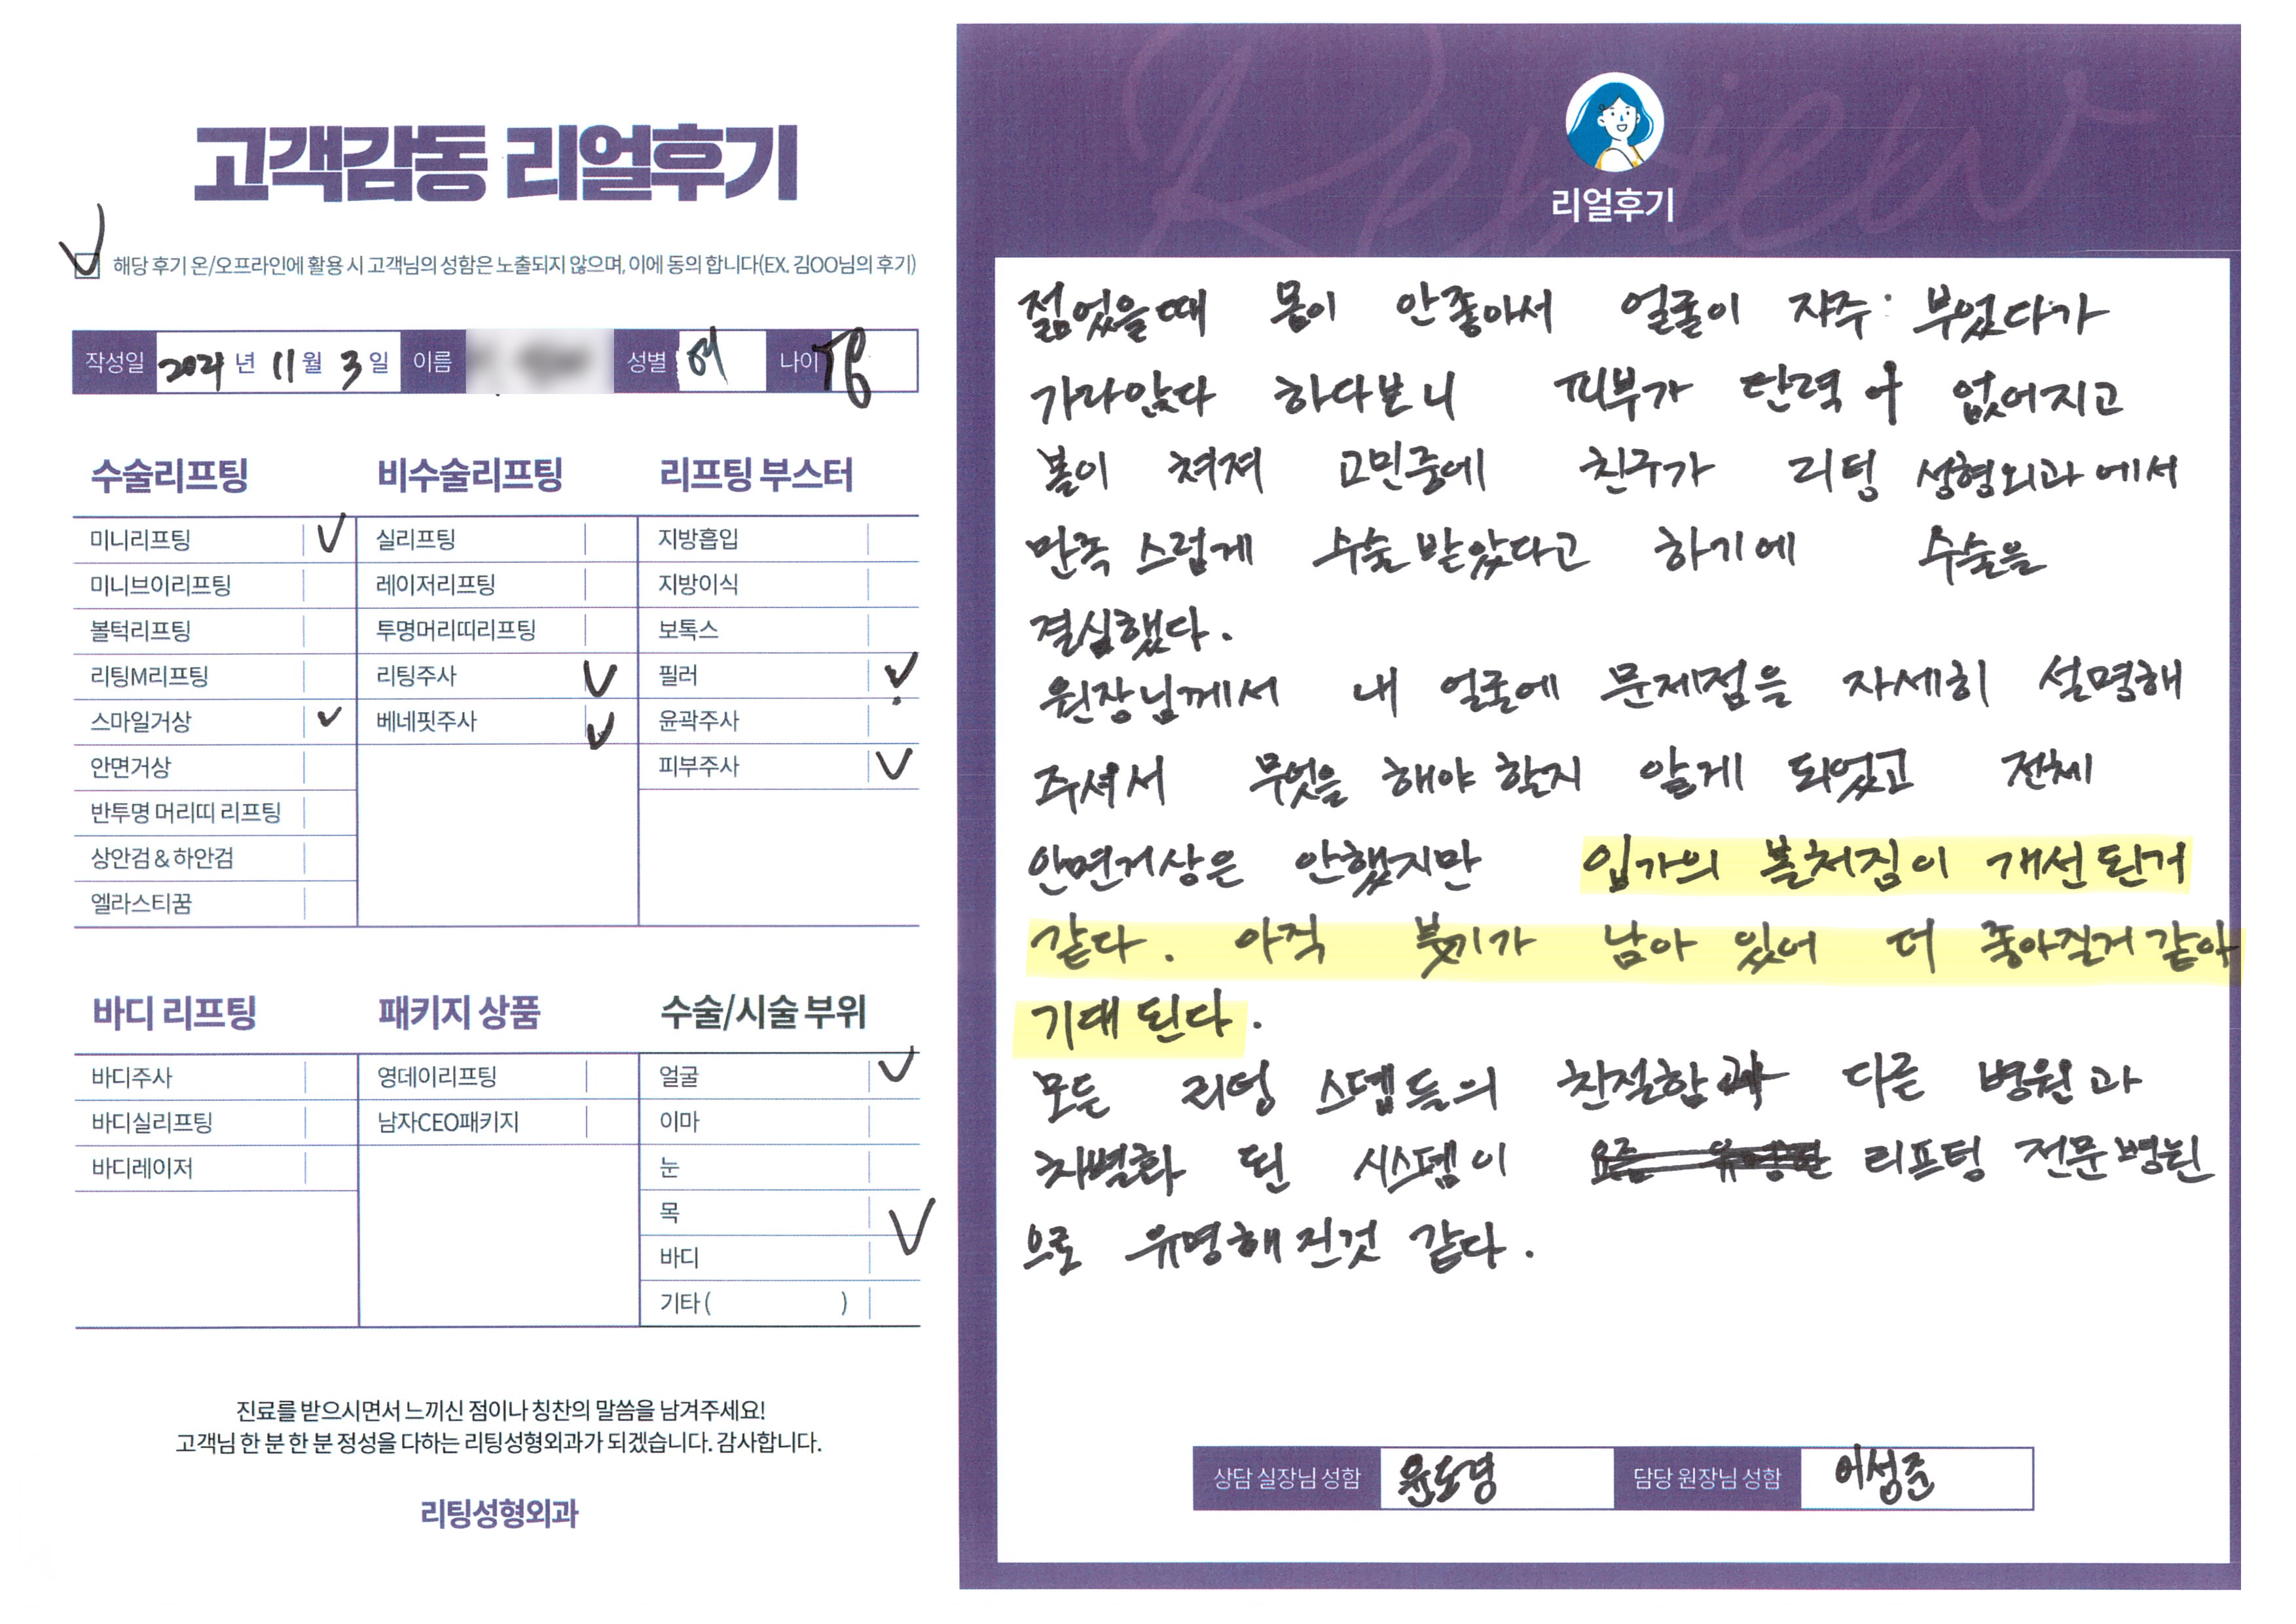 고객감동 리얼후기
해당 후기 온/오프라인에 활용 시 고객님의 성함은 노출되지 않으며, 이에 동의 합니다(EX. 김OO님의 후기)
작성일 2021년 11월 3일 이름 성별 여 나이
수술리프팅 비수술리프팅 리프팅 부스터
미니리프팅 실리프팅 지방흡입
미니브이리프팅 레이저리프팅 지방이식
볼턱리프팅 투명머리띠리프팅 보톡스
리팅M리프팅 리팅주사 필러
스마일거상 베네핏주사 윤곽주사
안면거상 피부주사
반투명 머리띠 리프팅
상안검 & 하안검
엘라스티꿈
바디 리프팅 패키지 상품 수술/시술 부위
바디주사 영데이리프팅 얼굴
바디실리프팅 남자CEO패키지 이마
바디레이저 눈
목
바디
기타 ( )
진료를 받으시면서 느끼신 점이나 칭찬의 말씀을 남겨주세요!
고객님 한 분 한 분 정성을 다하는 리팅성형외과가 되겠습니다. 감사합니다.
리팅성형외과
Review
리얼후기
젊었을때 몸이 안좋아서 얼굴이 자주 부었다가
가라앉다 하다보니 피부가 탄력 이 없어지고
볼이 쳐져 고민중에 친구가 리팅 성형외과에서
만족 스럽게 수술받았다고 하기에 수술을
결심했다.
원장님께서 내 얼굴에 문제점을 자세히 설명해
주셔서 무엇을 해야 할지 알게 되었고 전체
안면거상은 안했지만 입가의 볼쳐짐이 개선 된거
같다. 아직 붓기가 남아 있어 더 좋아질거 같아
기대 된다.
모든 리팅 스텝들의 친절함과 다른 병원과
차별화 된 시스템이 리프팅 전문병원
으로 유명해진것 같다.
상담 실장님 성함 윤도경 담당 원장님 성함 이성준